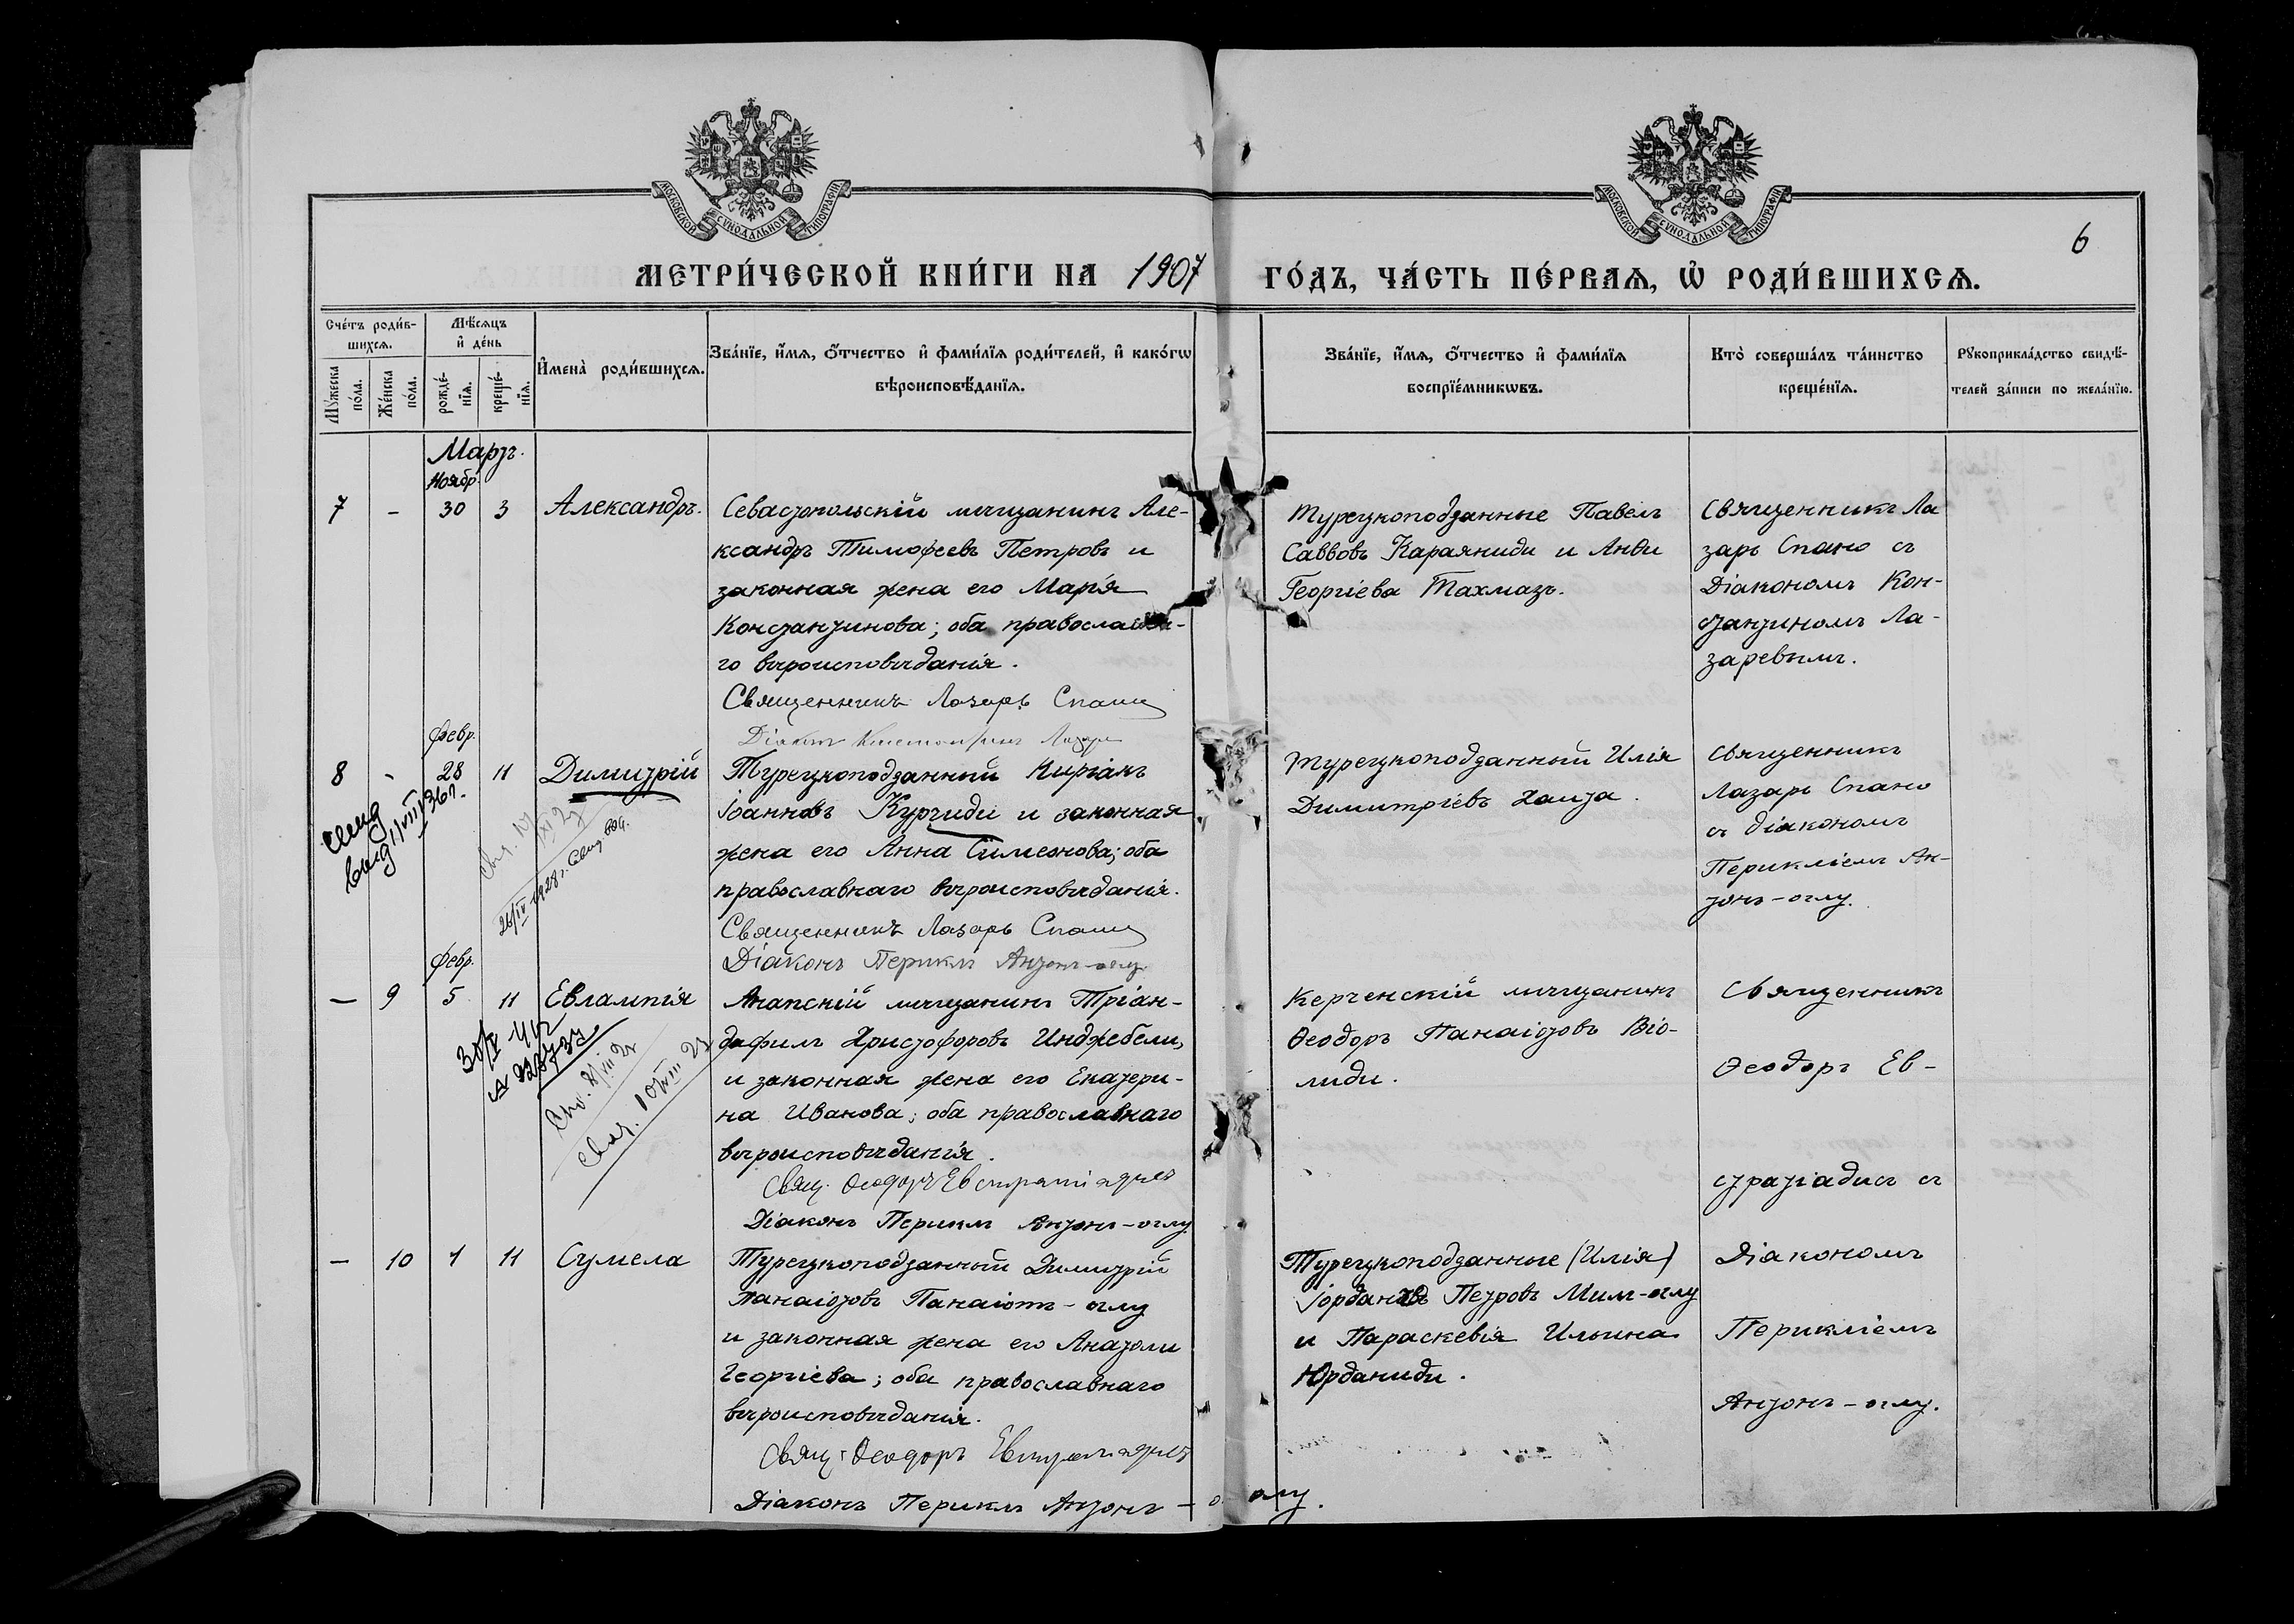 МОСКОВСКОЙ СУНОДАЛЬНОЙ ТИПОГРАФІИ
МОСКОВСКОЙ СУНОДАЛЬНОЙ ТИПОГРАФІИ
6
МЕТРИ́ЧЕСКОЙ КНИ́ГИ НА 1907 ГО́ДЪ, ЧА́СТЬ ПЕ́РВАѦ, Ѡ҆ РОДИ́ВШИХСѦ.
Сче́тъ роди́в-
шихсѧ.
Мꙋ́жеска по́ла.
Же́нска по́ла.
Мѣ́сѧцъ
и҆ де́нь
рожде́-
нїѧ.
креще́-
нїѧ.
И҆мена̀ роди́вшихсѧ.
Зва́нїе, и҆́мѧ, ѻ҆́тчество и҆ фами́лїѧ роди́телей, и҆ како́гѡ
вѣроисповѣ́данїѧ.
Зва́нїе, и҆́мѧ, ѻ҆́тчество и҆ фами́лїѧ
воспрїе́мникѡвъ.
Кто̀ соверша́лъ та́инство
креще́нїѧ.
Рꙋкоприкла́дство свидѣ́-
телей за́писи по жела́нїю.
Мартъ.
Ноябр.
7 - 30 3 Александръ.
Севастопольскій мѣщанинъ Але-
ксандръ Тимофеевъ Петровъ и
законная жена его Марія
Константинова; оба православна-
го вѣроисповѣданія.
Священникъ Лазарь Спано
Діаконъ Константинъ Лазаре
Турецкоподданные Павелъ
Саввовъ Караяниди и Анѳи
Георгіева Тахмазъ.
Священникъ Ла
зарь Спано съ
Діакономъ Кон-
стантиномъ Ла-
заревымъ.
февр.
8 - 28 11 Димитрій
Турецкоподданный Киріакъ
Іоанновъ Куртиди и законная
жена его Анна Симеонова; оба
православнаго вѣроисповѣданія.
Священникъ Лазарь Спано
Діаконъ Периклъ Антонъ-оглу
Турецкоподданный Илія
Димитріевъ Хаита.
Священникъ
Лазарь Спано
съ діакономъ
Перикліемъ Ан-
тонъ-оглу.
выд 11/VIII 36г.
26/IV 1928 г.
февр.
— 9 5 11 Евлампія
Анапскій мѣщанинъ Тріан-
дафилъ Христофоровъ Инджебели,
и законная жена его Екатери-
на Иванова; оба православнаго
вѣроисповѣданія.
Свящ. Ѳеодоръ Евстратіадисъ
Діаконъ Периклъ Антонъ-оглу
Керченскій мѣщанинъ
Ѳеодоръ Панаіотовъ Віо-
лиди.
Священникъ
Ѳеодоръ Ев-
стратіадисъ съ
— 10 1 11 Сумела
Турецкоподданный Димитрій
Панаіотовъ Панаіотъ-оглу
и законная жена его Анатоли
Георгіева; оба православнаго
вѣроисповѣданія.
Свящ. Ѳеодоръ Евстратіадисъ
Діаконъ Периклъ Антонъ - оглу.
Турецкоподданные (Илія)
Іордановъ Петровъ Мим-оглу
и Параскевія Ильина
Юрданиди.
Діакономъ
Перикліемъ
Антонъ-оглу.